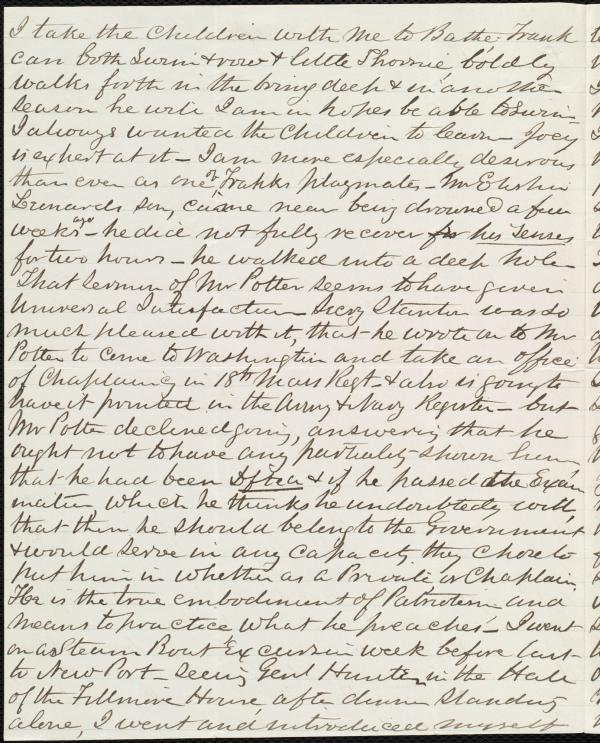 I take the Children with me to Bathe. Frank
can both Swim & row & little Thornie boldly
walks forth in the briny deep & in another
season he will I am in hopes be able to Swim
I always wanted the Children to learn - Joey
is expert at it - I am more especially desirous
than ever as one of Franks playmates - Mr
Leonards son, came near being drowned a few
weeks ago - he did not fully recover for his senses
for two hours - he walked into a deep hole -
That Sermon of Mr Potter seems to have given
Universal Satisfaction Secry Stanton was so
much pleased with it, that he wrote on to Mr
Potter to come to Washington and take an office
of Chaplaincy in 18th Mass Regt - & also is going to
have it printed in the Army & Navy Register - but
Mr Potter declined going, answering that he
ought not to have any partiality shown him,
that he had been Dfted & if he passed the Exam
ination, which he thinks he undoubtedly will,
that then he should belong to the Government
& would serve in any capacity they chose to
put him in whether as a Private or Chaplain
He is the true embodiment of Patriotism and
means to practice what he preaches - I went
on a Steam Boat Excursion week before last -
to New Port - seeing Genl Hunter in the Hall
of the Fillmore House, after dinner standing
alone, I went and introduced myself